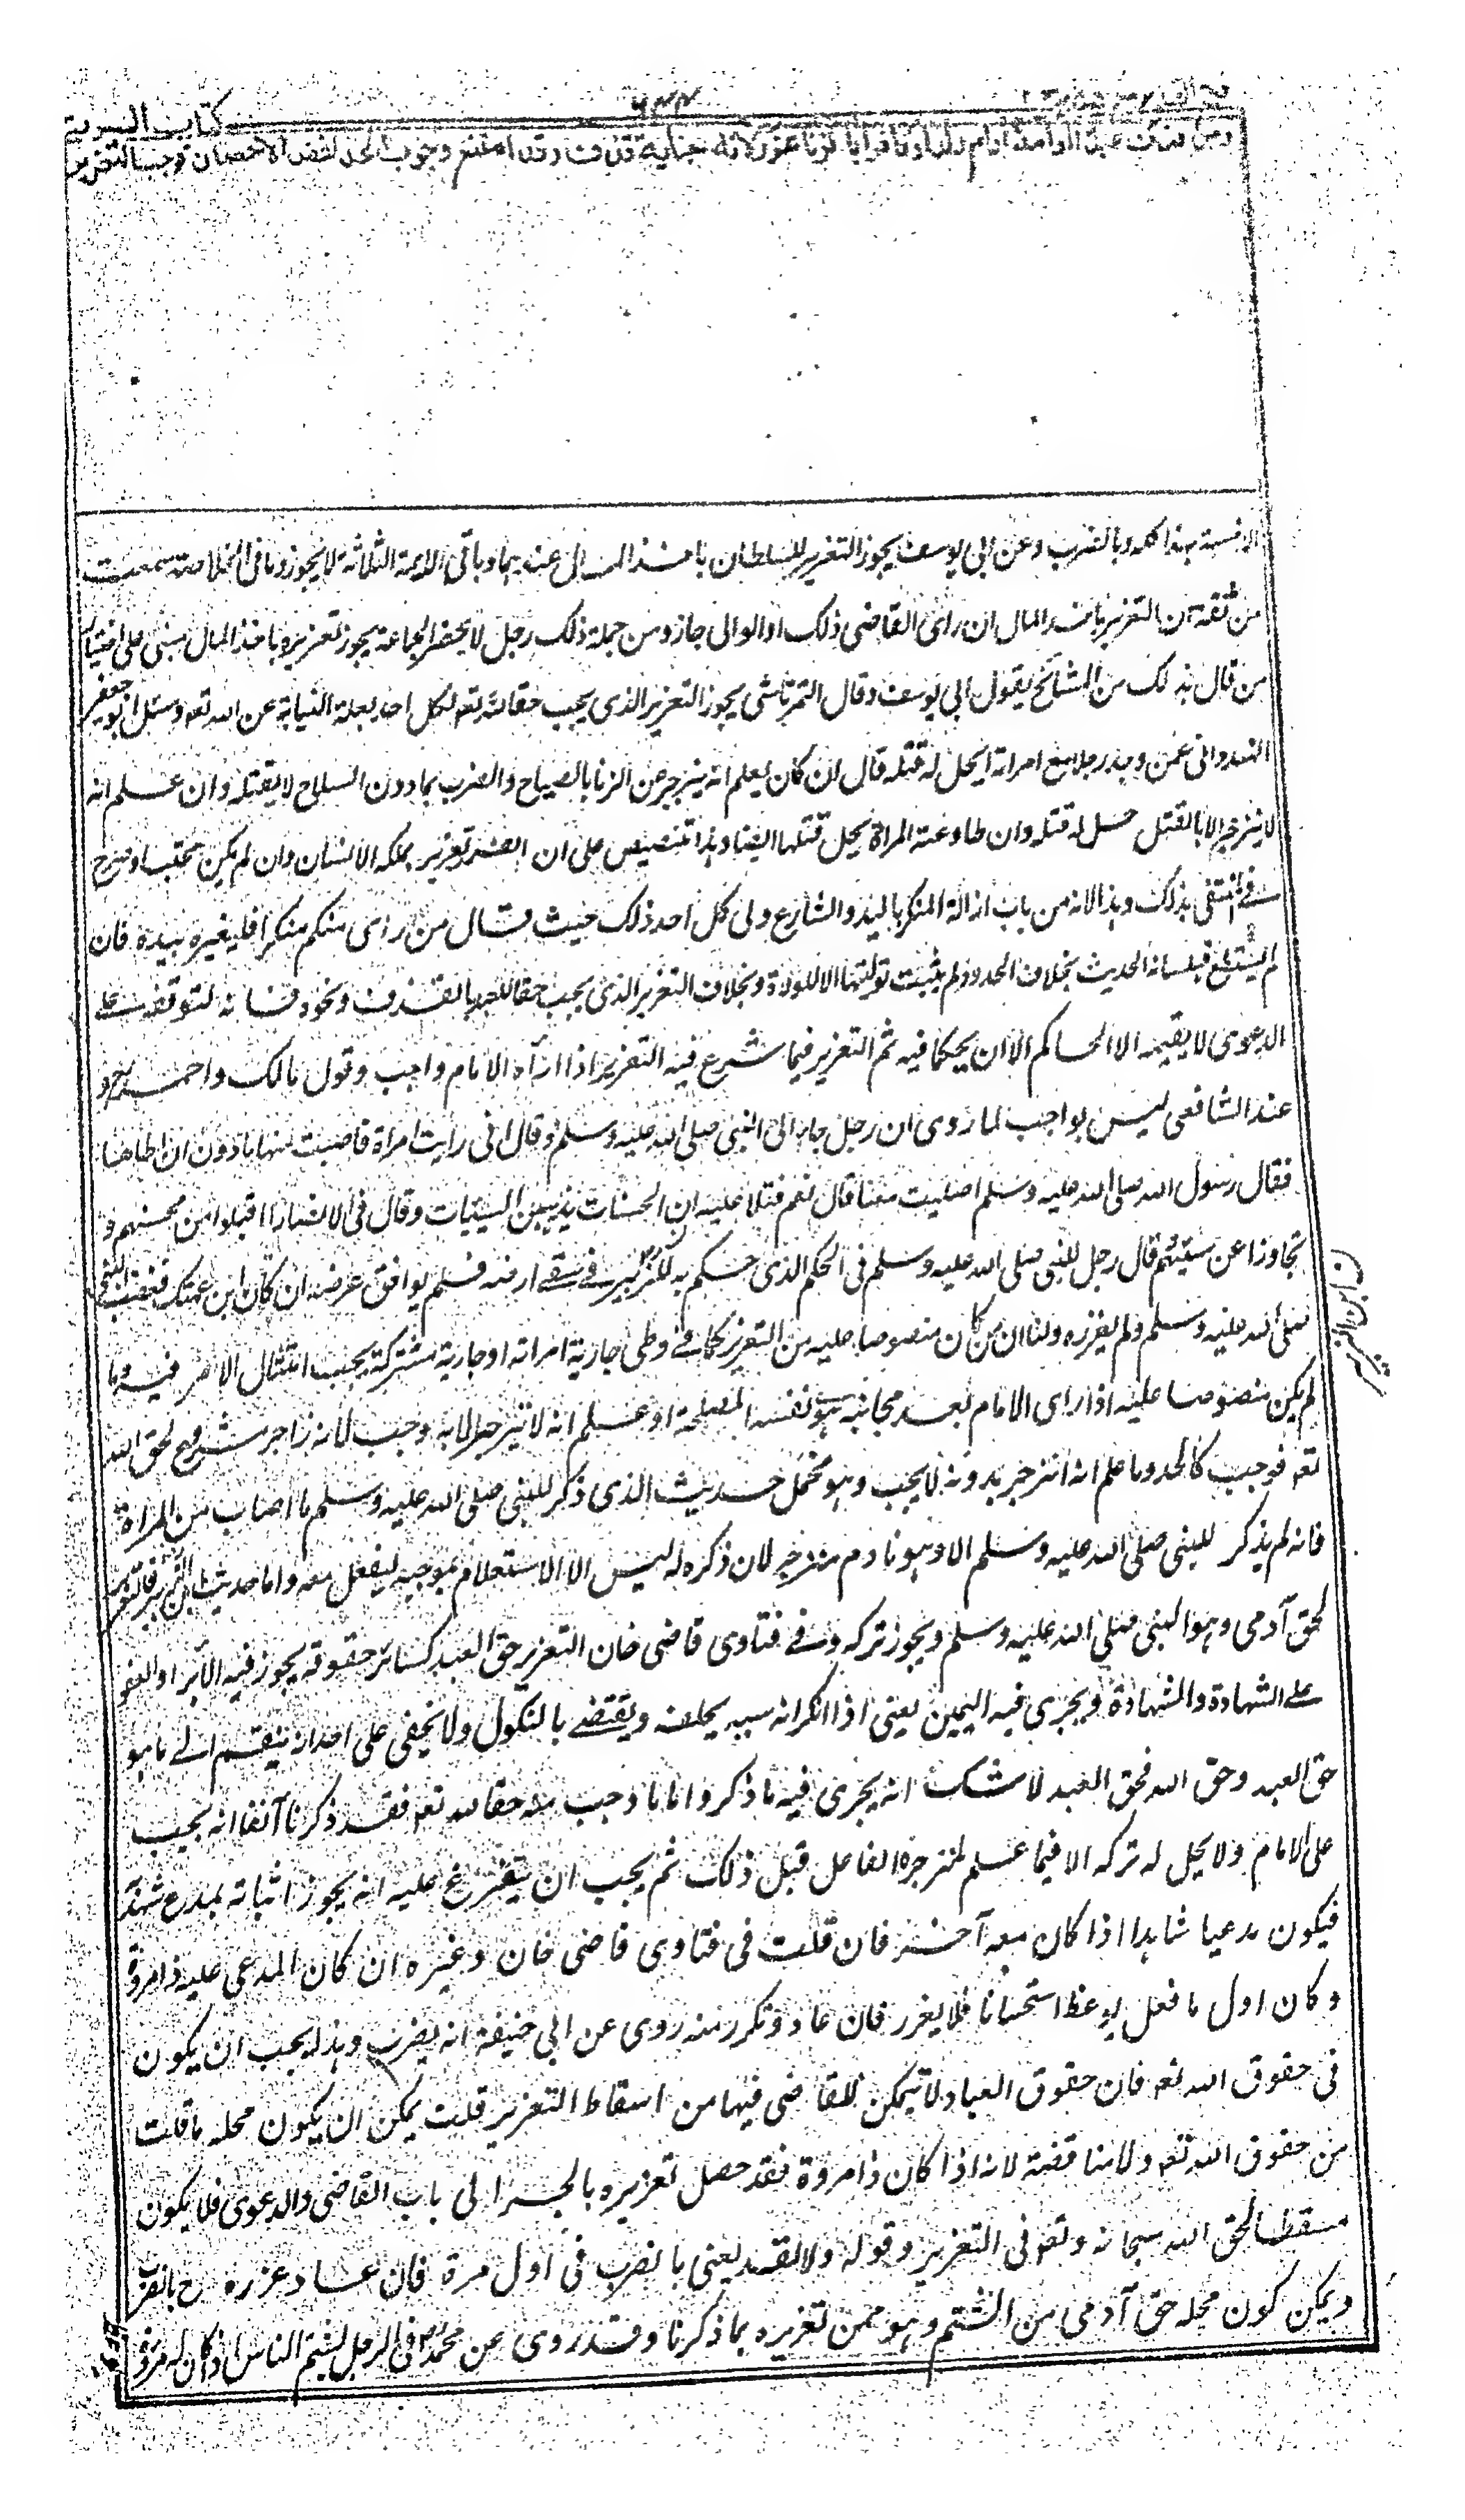 كتاب السرقة
ومن قذف عبدا او امة او ام ولد او كافرا بالزنا عزر لانه جناية قذف وقد امتنع وجوب الحد لفقد الاحصان فوجب التعزير
بهذا كله وبالضرب وعن ابى يوسف يجوز التعزير للسلطان باخذ المال وعندهما وباقى الايمة الثلاثة لا يجوز وما فى الخلاصة سمعت
من ثقة ان التعزير باخذ المال ان راى القاضى ذلك او الوالى جاز ومن جملة ذلك رجل لا يحضر الجماعة يجوز تعزيره باخذ المال مبنى على اختيار
من قال بذلك من المشائخ بقول ابى يوسف وقال التمرتاشى يجوز التعزير الذى يجب حقا لله تعه لكل احد بعلة النيابة عن الله تعه وسئل ابو جعفر
الهندوانى عمن وجد رجلا مع امراته ايحل له قتله قال ان كان يعلم انه ينزجر عن الزنا بالصياح والضرب بما دون السلاح لا يقتله وان علم انه
لا ينزجر الا بالقتل حل له قتله وان طاوعته المراة يحل قتلها ايضا وهذا تنصيص على ان الضرب تعزير يملكه الانسان وان لم يكن محتسبا وصرح
فى المنتقى بذلك وهذا لانه من باب ازالة المنكر باليد والشارع ولى كل احد ذلك حيث قال من راى منكم منكرا فليغيره بيده فان
لم يستطع فبلسانه الحديث بخلاف الحدود لم يثبت توليتها الا للولاة وبخلاف التعزير الذى يجب حقا للعبد بالقذف ونحوه فانه لتوقفه على
الدعوى لا يقيمه الا الحاكم الا ان يحكما فيه ثم التعزير فيما شرع فيه التعزير اذا رآه الامام واجب وقول مالك واحمد رح و
عند الشافعى ليس بواجب لما روى ان رجل جاء الى النبى صلى الله عليه وسلم وقال انى رايت امراة فاصبت منها ما دون ان اطاها
فقال رسول الله صلى الله عليه وسلم اصليت معنا قال نعم فتلا عليه ان الحسنات يذهبن السيئات وقال فى الانصار اقبلوا من محسنهم و
تجاوزا عن مسيئهم قال رجل للنبى صلى الله عليه وسلم فى الحكم الذى حكم به للزبير فى سقى ارضه فلم يوافق غرضه ان كان ابن عمتك فغضب النبى
صلى الله عليه وسلم ولم يعزره ولنا ان ما كان منصوصا عليه من التعزير كما فى وطى جارية امراته او جارية مشتركة يجب امتثال الامر فيه وما
لم يكن منصوصا عليه اذا راى الامام بعد مجانبة هوى نفسه المصلحة او علم انه لا ينزجر الا به وجب لانه زاجر مشروع لحق الله
تعه فوجب كالحد وما علم انه انزجر بدونه لا يجب وهو محمل حديث الذى ذكر للنبى صلى الله عليه وسلم ما اصاب من المراة
فانه لم يذكر للنبى صلى الله عليه وسلم الا وهو نادم منزجر لان ذكره له ليس الا الاستعلام بموجبه ليفعل معه واما حديث ابن الزبير فالتعزير
لحق آدمى وهو النبى صلى الله عليه وسلم ويجوز تركه وفى فتاوى قاضى خان التعزير حق العبد كسائر حقوقه يجوز فيه الابراء والعفو
على الشهادة والشهادة ويجرى فيه اليمين يعنى اذا انكر انه سبه يحلف ويقضى بالنكول ولا يخفى على احد انه ينقسم الى ما هو
حق العبد وحق الله فحق العبد لا شك انه يجرى فيه ما ذكر واما ما وجب منه حقا لله تعه فقد ذكرنا آنفا انه يجب
على الامام ولا يحل له تركه الا فيما علم انزجره الفاعل قبل ذلك ثم يجب ان يتفرع عليه انه يجوز اثباته بمدع شهد به
فيكون مدعيا شاهدا اذا كان معه آخر فان قلت فى فتاوى قاضى خان وغيره ان كان المدعى عليه ذا مروة
وكان اول ما فعل يوعظ استحسانا فلا يعزر فان عاد وتكرر منه روى عن ابى حنيفة انه يضرب وهذا يجب ان يكون
فى حقوق الله تعه فان حقوق العباد لا يتمكن القاضى فيها من اسقاط التعزير قلت يمكن ان يكون محله ما قلت
من حقوق الله تعه ولا مناقضة لانه اذا كان ذا مروة فقد حصل تعزيره بالجر الى باب القاضى والدعوى فلا يكون
مسقطا لحق الله سبحانه وتعه فى التعزير وقوله ولا يعزر يعنى بالضرب فى اول مرة فان عاد عزره ح بالضرب
ويمكن كون محله حق آدمى من الشتم وهو ممن تعزيره بما ذكرنا وقد روى عن محمد رح فى الرجل يشتم الناس اذا كان له مروة
ن ابن الزبير